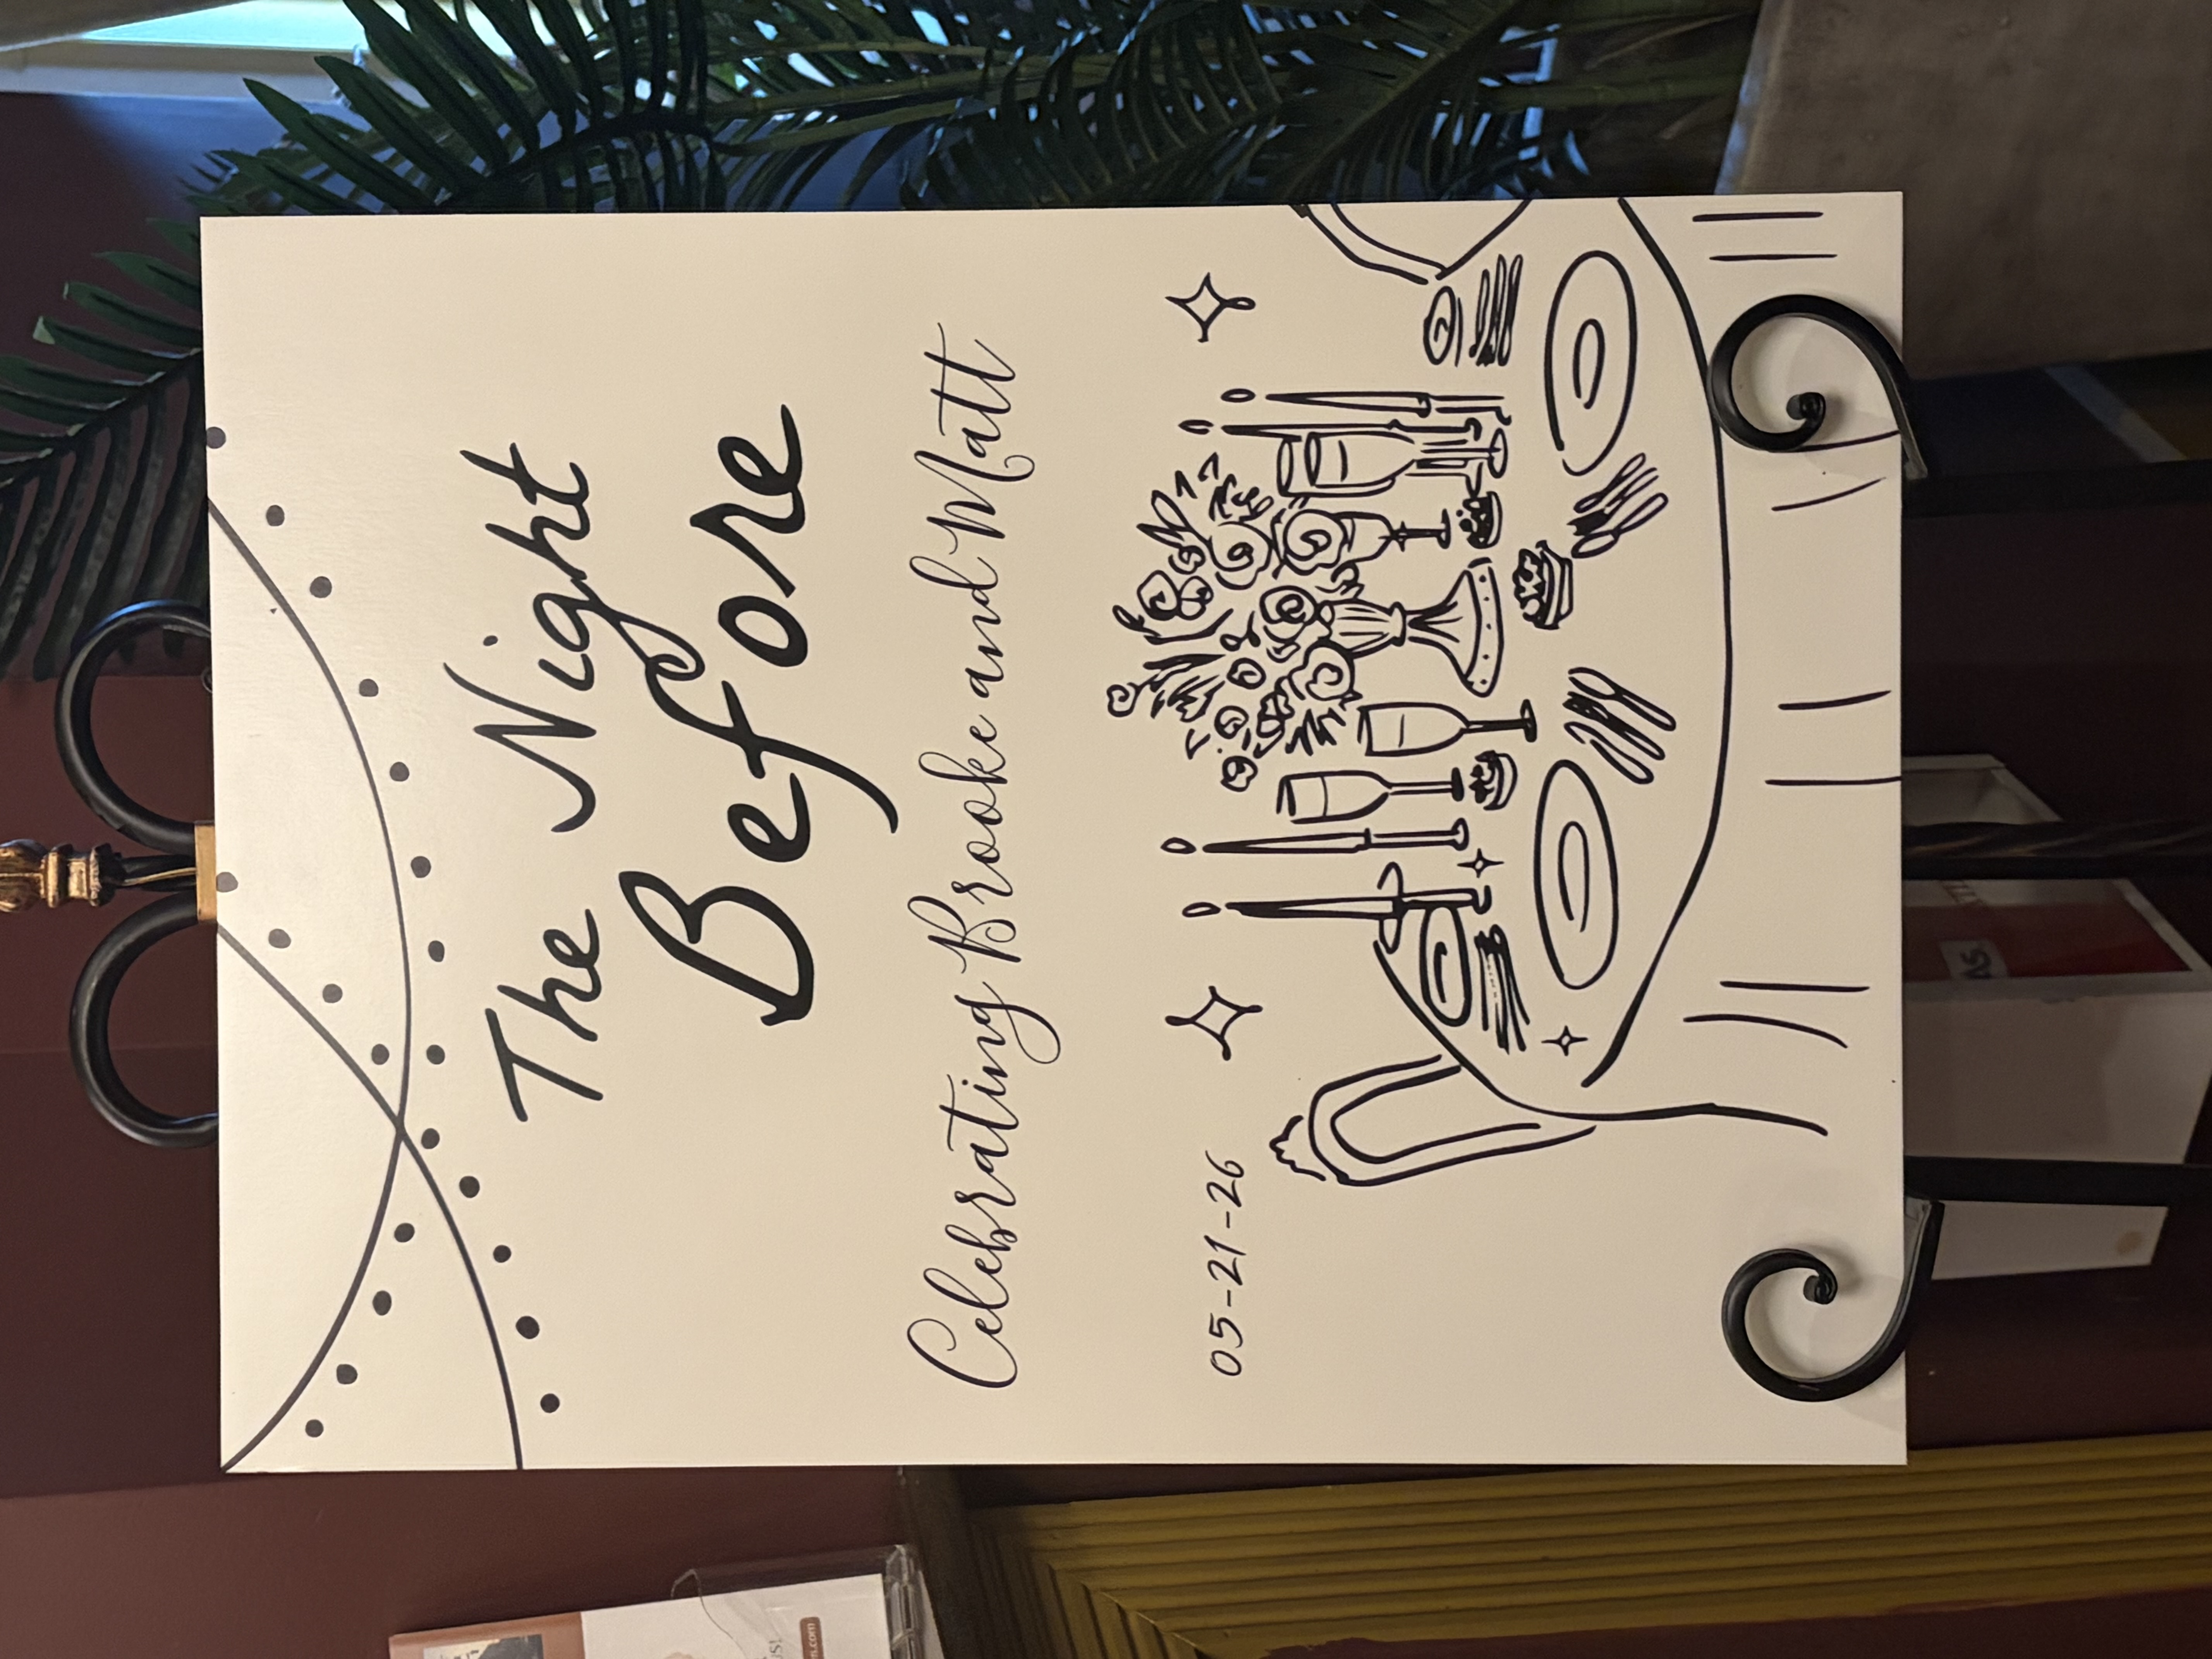 The Night
Before
Celebrating Brooke and Matt
05-21-26